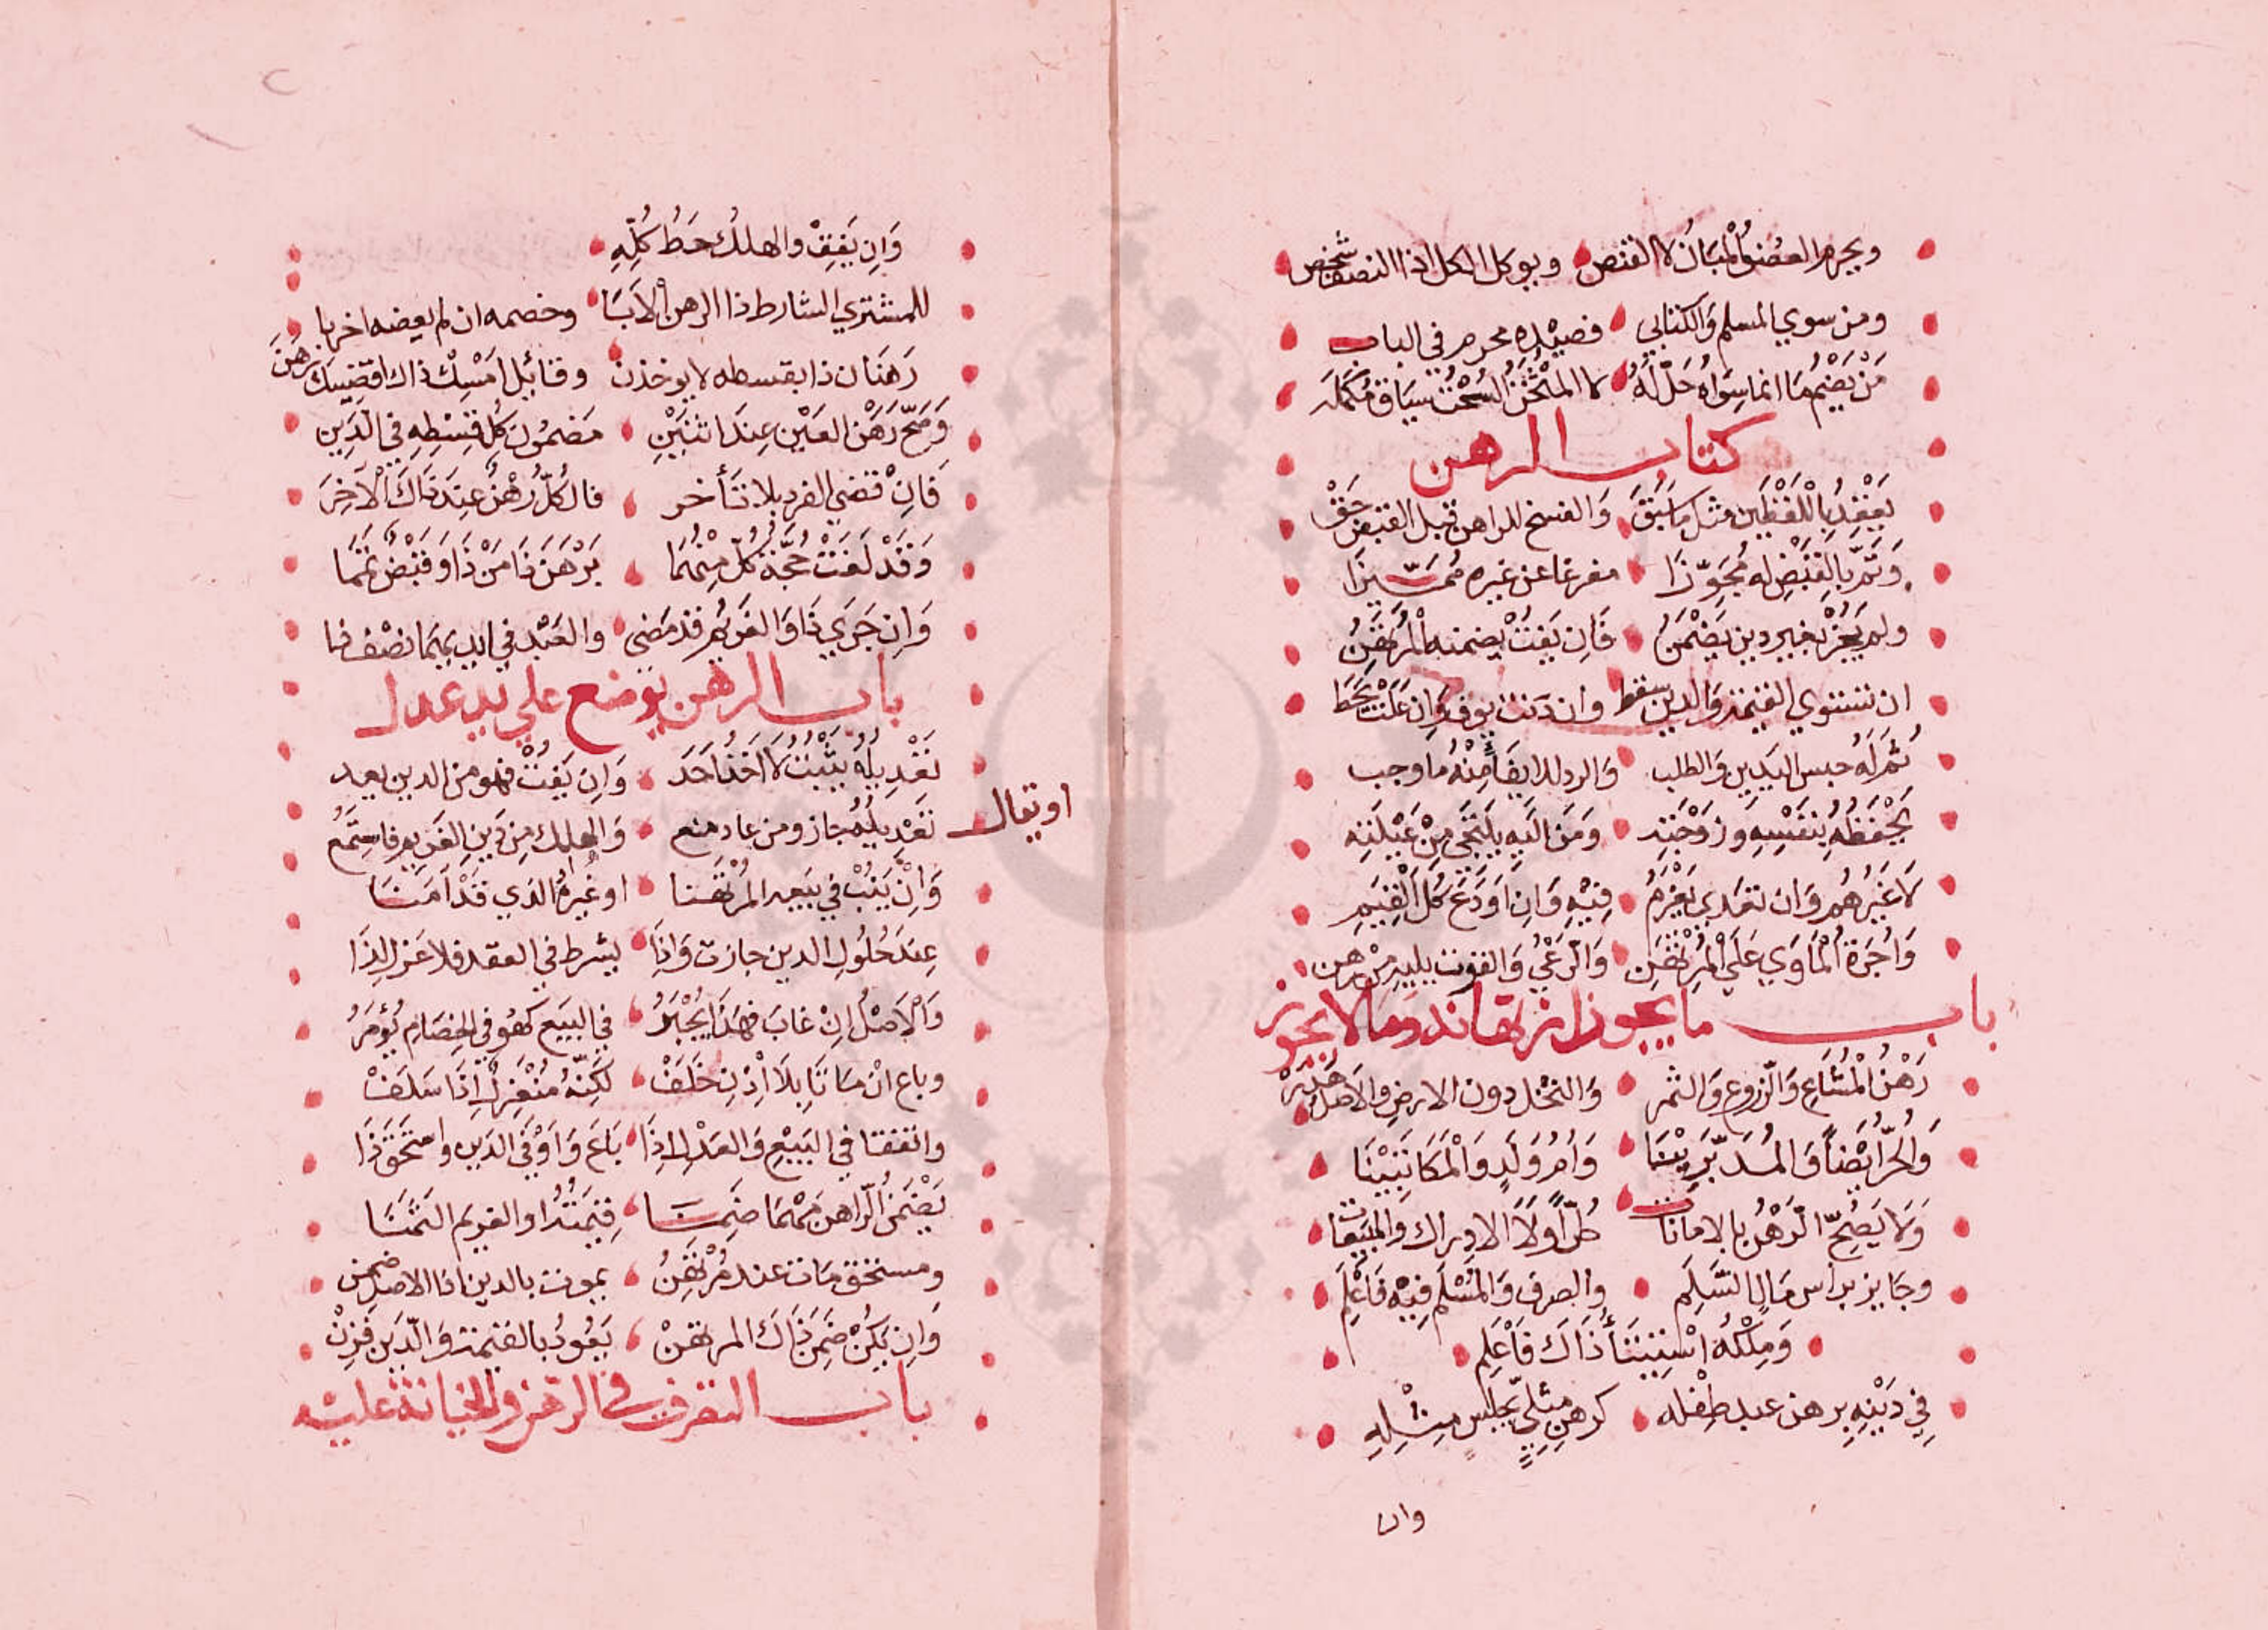 ويحرم العضو المبان لا القنص ويوكل الكل اذا النصف شخص
ومن سوي المسلم والكتابي فصيده محرم في الباب
من يضم ما انما سواه حل له لا المثخن سياق كمله
كتاب الرهن
يعقد باللفظين مثل ما سبق والفسخ للراهن قبل القبض حق
وتم بالقبض له مجوزا مفرغا عن غيره مميزا
ولم يجز بغير دين يضمن فان يفت يضمنه المرتهن
ان تستوي القيمة والدين سقط وان دنت يوف وان علت يحط
ثم له حبس اليدين والطلب والرد للايفا منه ما وجب
يحفظه بنفسه وزوجته ومن اليه يلتجي من عيلته
لا غيرهم وان تعدي يغرم فيه وان اودع كل القيم
واجرة المأوي علي المرتهن والرعي والقوت يليه من رهن
باب ما يجوز ارتهانه وما لا يجوز
رهن المشاع والزروع والثمر والنخل دون الارض والاصل هدر
والحر ايضا والمدبرينا وام ولد والمكاتبينا
ولا يصح الرهن بالامانات كلا ولا الادراك والمبيعات
وجايز براس مال السلم والصرف والمسلم فيه فاعلم
وملكه استيتنا ذاك فاعلم
في دينه يرهن عبد طفله كرهن مثلي بجنس مثله
وان
وان يفق والهلك حط كله
للمشتري الشارط ذا الرهن الابا وخصمه ان لم يعضه اخر با
رهنان ذا بقسطه لا يوخذن وقائل امسك ذاك اقضيك رهن
وصح رهن العين عند اثنين مضمون كل قسطه في الدين
فان قضي الفرد بلا تأخر فالكل رهن عند ذاك الاخر
وقد لغت حجة كل منهما برهن ذا من ذا وقبض تمما
وان جري ذا والغريم قد مضي والعبد في ايديهما نصف
باب الرهن يوضع علي يد عدل
تعديله يثبت لا اخذ احد وان يفت فهو من الدين يعد
او يقال تعديله جاز ومن عاد منع والهلك من دين الغريم فاستمع
وان ينب في بيعه المرتهنا او غيره الذي قد امنا
عند حلول الدين جازت واذا يشرط في العقد فلا عزل لذا
والاصل ان غاب فهذا يجبر في البيع كهو في الخصام يؤمر
وباع ان ماتا بلا اذن خلف لكنه منعزل اذا سلف
واتفقا في البيع والعدل اذا باع واوفي الدين واستحق ذا
يضمن الراهن مهما ضمنا قيمته او الغريم الثمنا
ومستحق مات عند مرتهن يموت بالدين اذا الاصل ضمن
وان يكن ضمن ذاك المرتهن يعود بالقيمة والدين فزن
باب التصرف في الرهن والجناية عليه